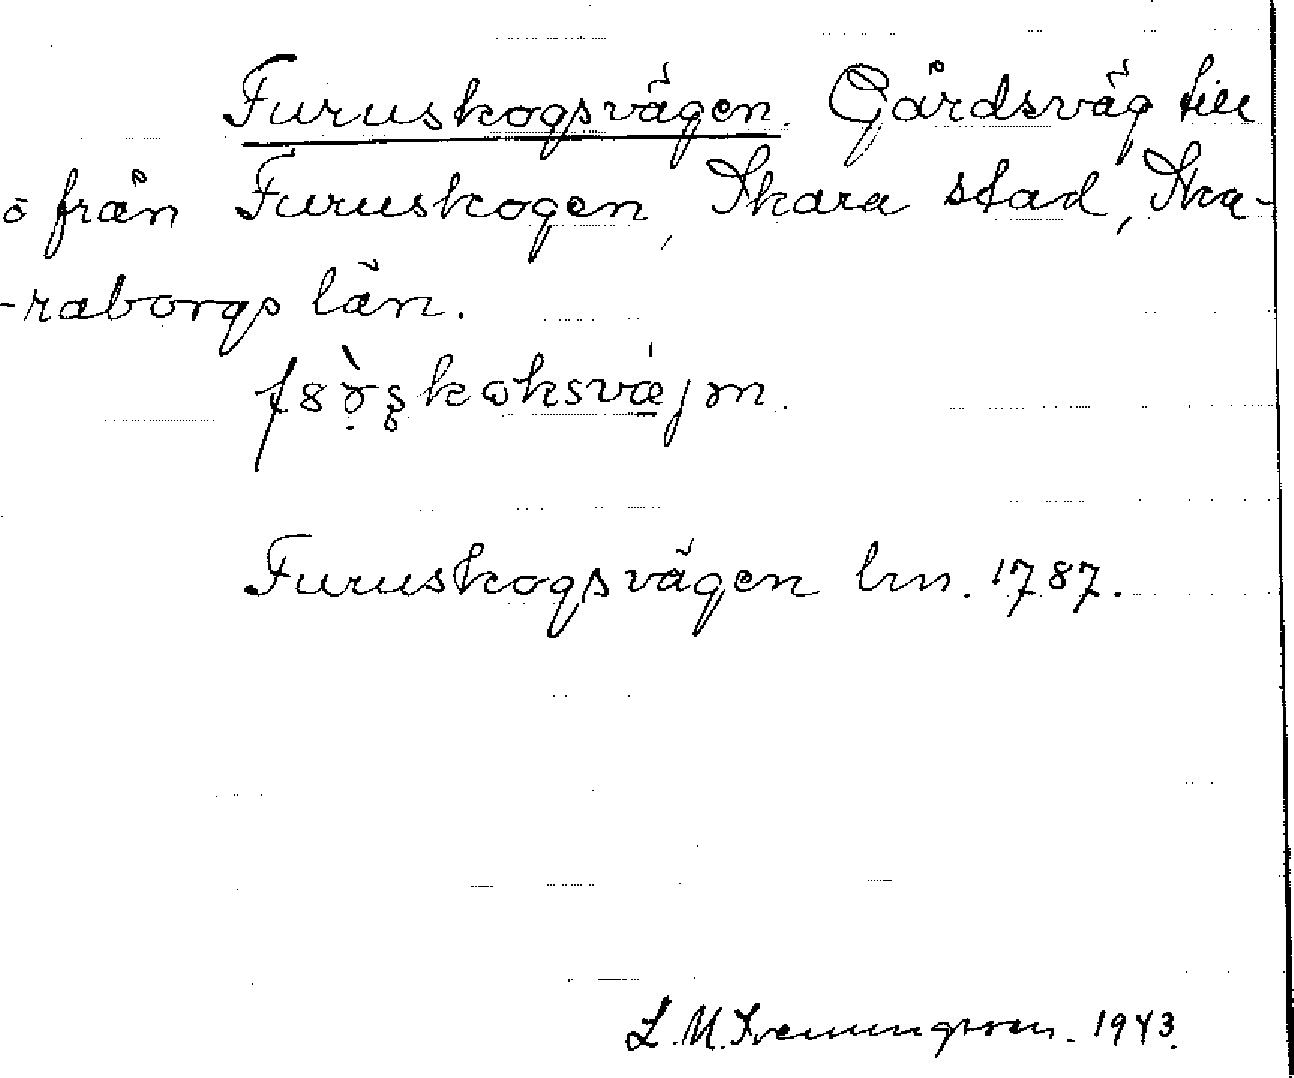 Furuskogsvägen. Gårdsväg till
o från Furuskogen, Skara stad, Ska-
-raborgs län.
Furuskogsvägen lm. 1787.
L. M. Svenungsson. 1943.